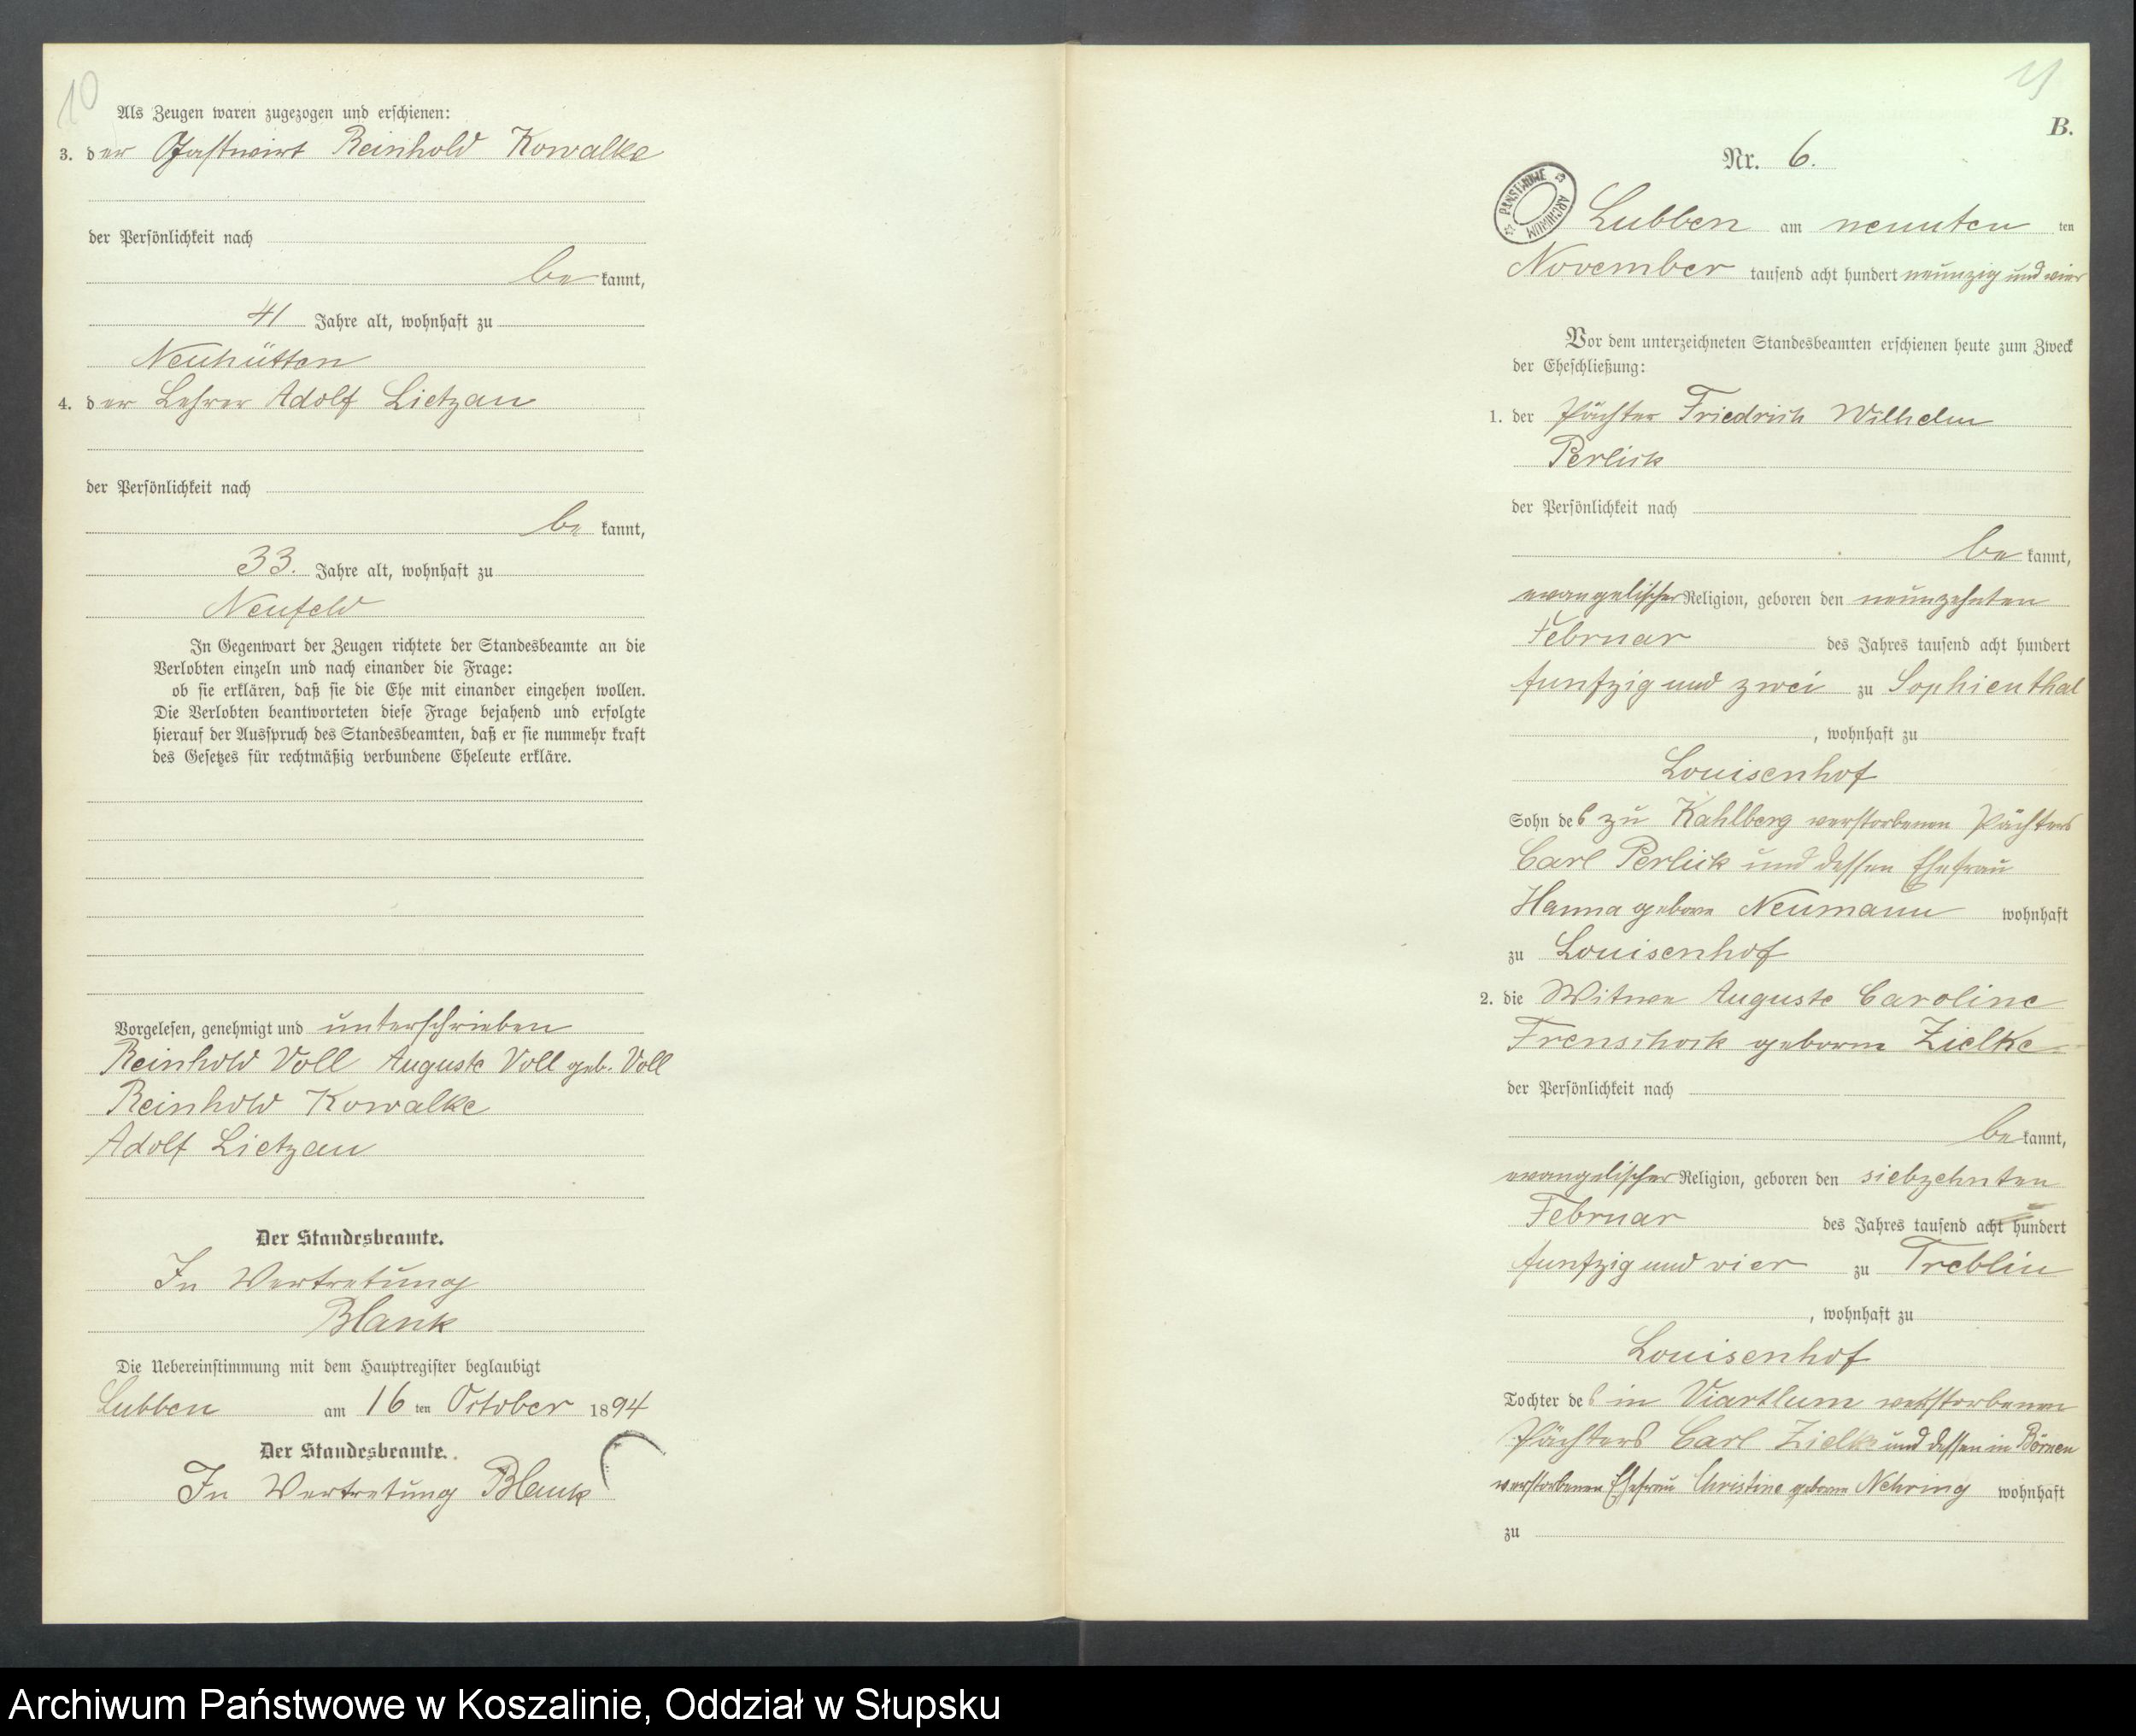 10
Als Zeugen waren zugezogen und erschienen:
3. der Gastwirt Reinhold Kowalke
der Persönlichkeit nach
be kannt,
41 Jahre alt, wohnhaft zu
Neuhütten
4. der Lehrer Adolf Lietzau
der Persönlichkeit nach
be kannt,
33. Jahre alt, wohnhaft zu
Neufeld
In Gegenwart der Zeugen richtete der Standesbeamte an die
Verlobten einzeln und nach einander die Frage:
ob sie erklären, daß sie die Ehe mit einander eingehen wollen.
Die Verlobten beantworteten diese Frage bejahend und erfolgte
hierauf der Ausspruch des Standesbeamten, daß er sie nunmehr kraft
des Gesetzes für rechtmäßig verbundene Eheleute erkläre.
Vorgelesen, genehmigt und unterschrieben
Reinhold Voll Auguste Voll geb. Voll
Reinhold Kowalke
Adolf Lietzau
Der Standesbeamte.
In Vertretung
Blank
Die Uebereinstimmung mit dem Hauptregister beglaubigt
Lubben am 16 ten October 1894
Der Standesbeamte.
In Vertretung Blank
B.
Nr. 6.
ARCHIWUM PAŃSTWOWE
Lubben am neunten ten
November tausend acht hundert neunzig und vier
Vor dem unterzeichneten Standesbeamten erschienen heute zum Zweck
der Eheschließung:
1. der Pächter Friedrich Wilhelm
Perlick
der Persönlichkeit nach
be kannt,
evangelischer Religion, geboren den neunzehnten
Februar des Jahres tausend acht hundert
funfzig und zwei zu Sophienthal
, wohnhaft zu
Louisenhof
Sohn des zu Kahlberg verstorbenen Pächters
Carl Perlick und dessen Ehefrau
Hanna geborne Neumann wohnhaft
zu Louisenhof
2. die Witwe Auguste Caroline
Frenschock geborne Zielke
der Persönlichkeit nach
be kannt,
evangelischer Religion, geboren den siebzehnten
Februar des Jahres tausend acht hundert
funfzig und vier zu Treblin
, wohnhaft zu
Louisenhof
Tochter des in Viartlum verstorbenen
Pächters Carl Zielke und dessen in Börnen
verstorbenen Ehefrau Christine geborne Nehring wohnhaft
zu
Archiwum Państwowe w Koszalinie, Oddział w Słupsku